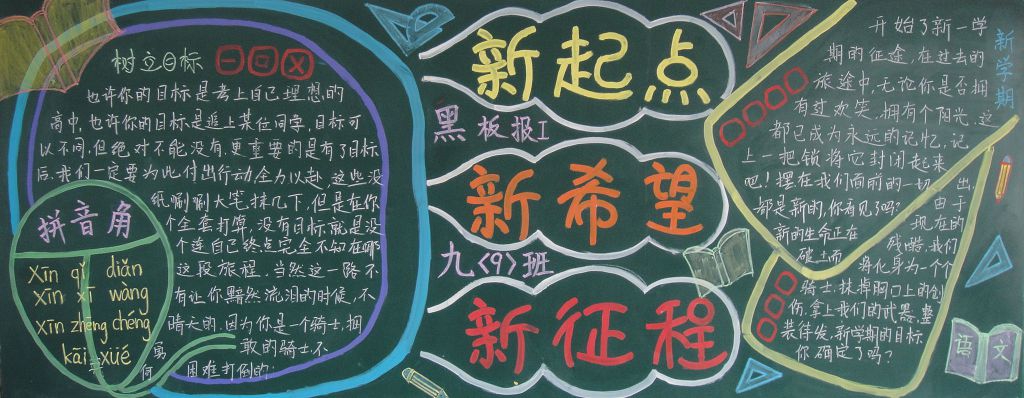 树立目标
也许你的目标是考上自己理想的
高中,也许你的目标是追上某位同学,目标可
以不同,但绝对不能没有.更重要的是有了目标
后,我们一定要为此付出行动.全力以赴,这些没
纸唰唰大笔.抹几下,但是在你
个全套打算,没有目标,就是没
个连自己终点完全不知在哪
这段旅程.当然这一路不
有让你黯然流泪的时候,不
晴天的.因为你是一个骑士,拥
敢的骑士不
困难打倒的:
拼音角
xīn qǐ diǎn
xīn xī wàng
xīn zhēng chéng
kāi xué
新起点
黑板报I
新希望
九<9>班
新征程
新学期
开始了新一学
期的征途,在过去的
旅途中,无论你是否拥
有过欢笑.拥有个阳光.这
都已成为永远的记忆,记
上一把锁将它封闭起来
吧!摆在我们面前的一切
都是新的,你看见了吗?
新的生命正在
破土而
出.
由于
现在的
残酷,我们
将化身为一个个
骑士.抹掉胸口上的创
伤.拿上我们的武器,整
装待发.新学期的目标
你确定了吗?
语文